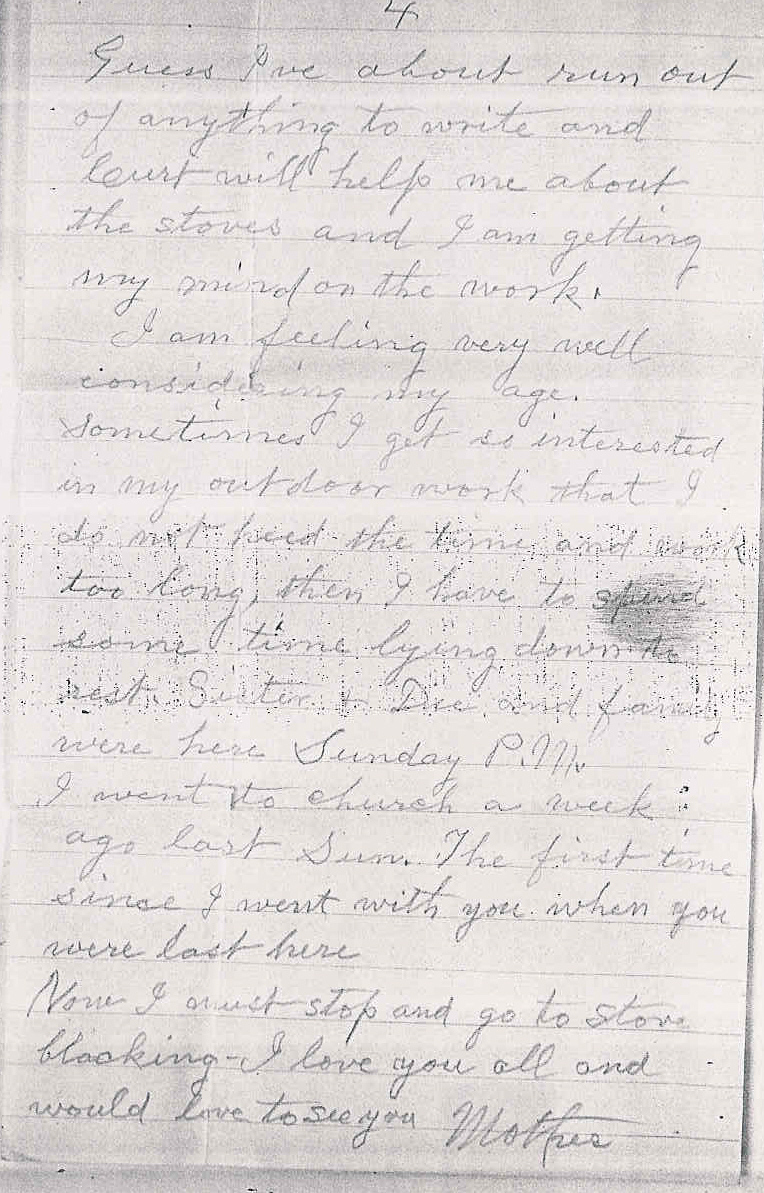 4
Guess I've about run out
of anything to write and
Curt will help me about
the stoves and I am getting
my mind on the work.
I am feeling very well
considering my age.
Sometimes I get so interested
in my outdoor work that I
do not heed the time and work
too long, then I have to spend
some time lying down to
rest. Sister & Dee and family
were here Sunday P.M.
I went to church a week
ago last Sun. The first time
since I went with you when you
were last here
Now I must stop and go to stove
blacking - I love you all and
would love to see you Mother